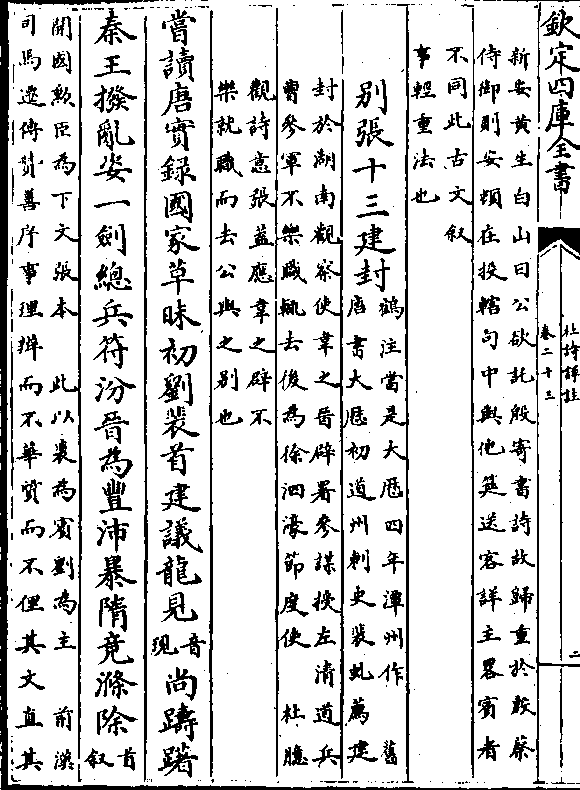 欽定四庫全書
杜詩詳註
卷二十三
二
新安黄生白山曰公欲託殷寄書詩故歸重於較蔡
侍御則安頓在投轄句中與他筵送客詳主畧賓者
不同此古文叙
事輕重法也
別張十三建封
鶴注當是大厯四年潭州作 舊
唐書大厯初道州刺史裴虬薦建
封於湖南觀察使韋之晉辟署參謀授左清道兵
曹參軍不樂職輒去後為徐泗濠節度使 杜臆
觀詩意張蓋應韋之辟不
樂就職而去公與之別也
嘗讀唐實録國家草昧初劉裴首建議龍見音現尚躊躇
秦王撥亂姿一劍總兵符汾晉為豐沛暴隋竟滌除首叙
開國勲臣為下文張本 此以裴為賓劉為主 前漢
司馬遷傳贊善序事理辨而不華質而不俚其文直其